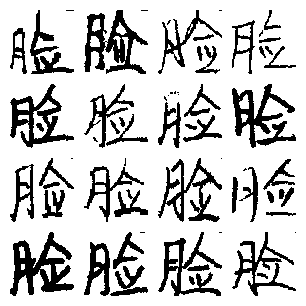 脸脸脸脸
脸脸脸脸
脸脸脸脸
脸脸脸脸